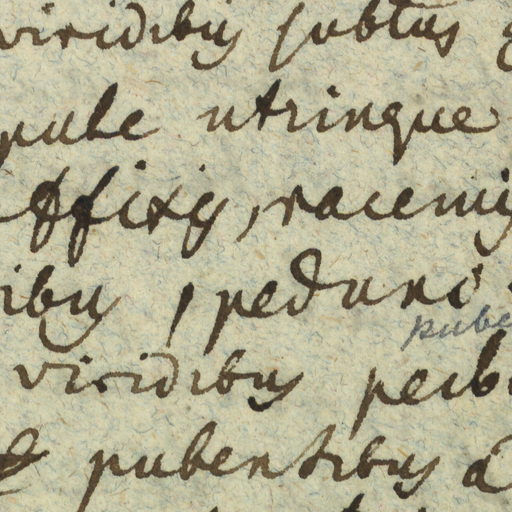 viridibus subtus
pube utrinque
affixis, racemis
ibus, pedunc
pube
viridibus
pubentibus a